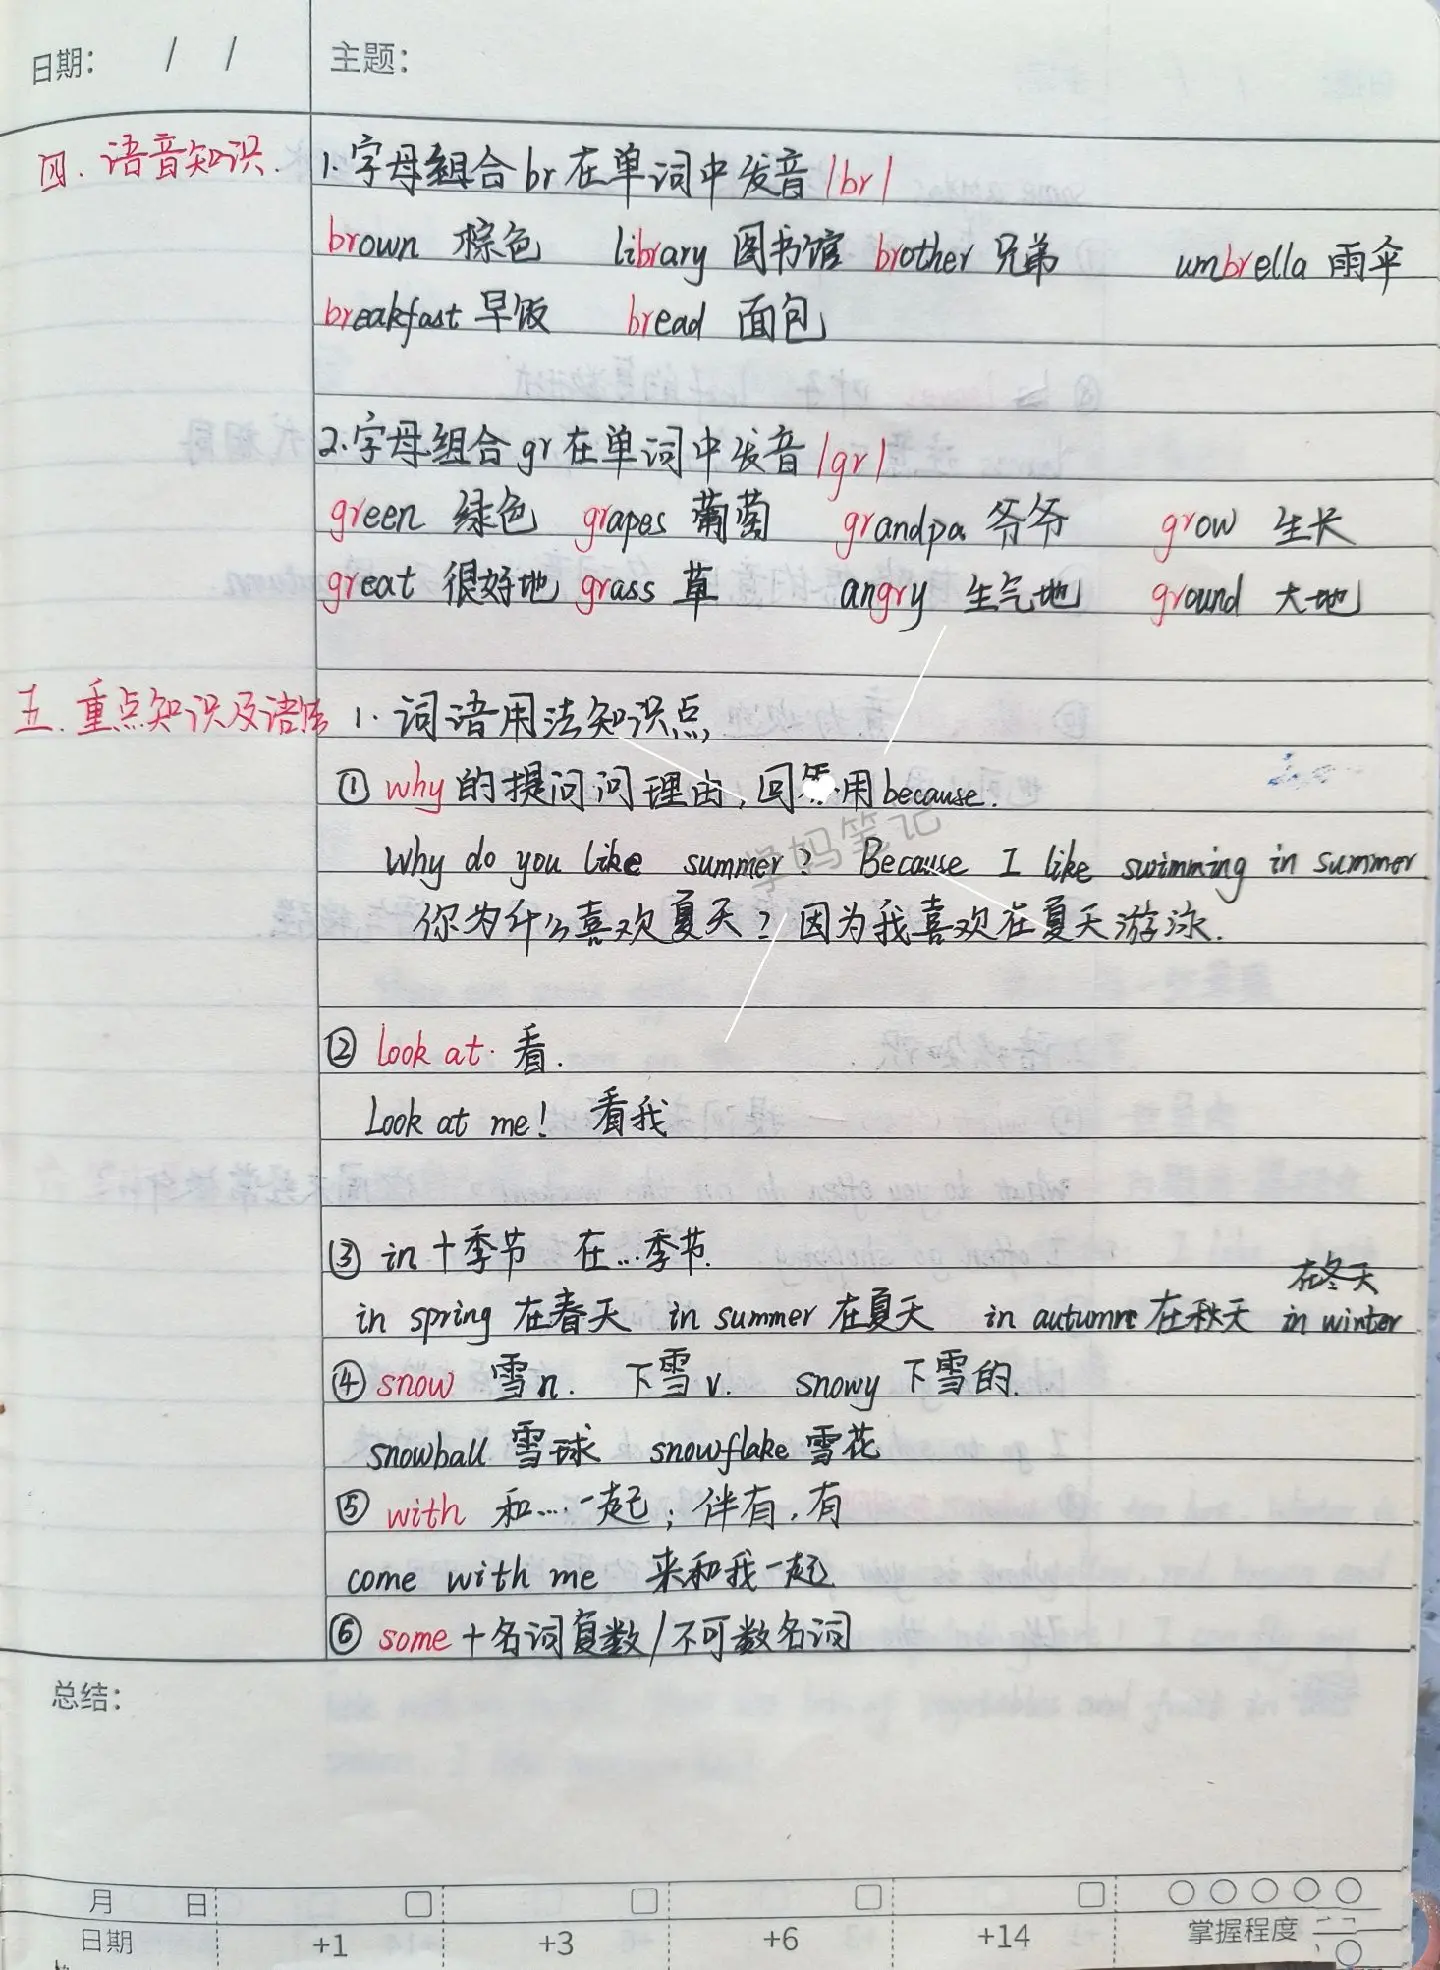 日期： / / 主题：
四.语音知识. 1.字母组合br在单词中发音/br/
brown 棕色 library 图书馆 brother 兄弟 umbrella 雨伞
breakfast 早饭 bread 面包
2.字母组合gr在单词中发音/gr/
green 绿色 grapes 葡萄 grandpa 爷爷 grow 生长
great 很好地 grass 草 angry 生气地 ground 大地
五.重点知识及语法 1.词语用法知识点
① why的提问问理由，回答用because.
Why do you like summer? Because I like swimming in summer
你为什么喜欢夏天？因为我喜欢在夏天游泳.
学妈笔记
② look at. 看.
Look at me! 看我
③ in+季节 在...季节.
在冬天
in spring 在春天 in summer 在夏天 in autumn 在秋天 in winter
④ snow 雪n. 下雪v. snowy 下雪的.
snowball 雪球 snowflake 雪花
⑤ with 和...一起；伴有，有
come with me 来和我一起
⑥ some+名词复数/不可数名词
总结：
月 日
日期 +1 +3 +6 +14 掌握程度